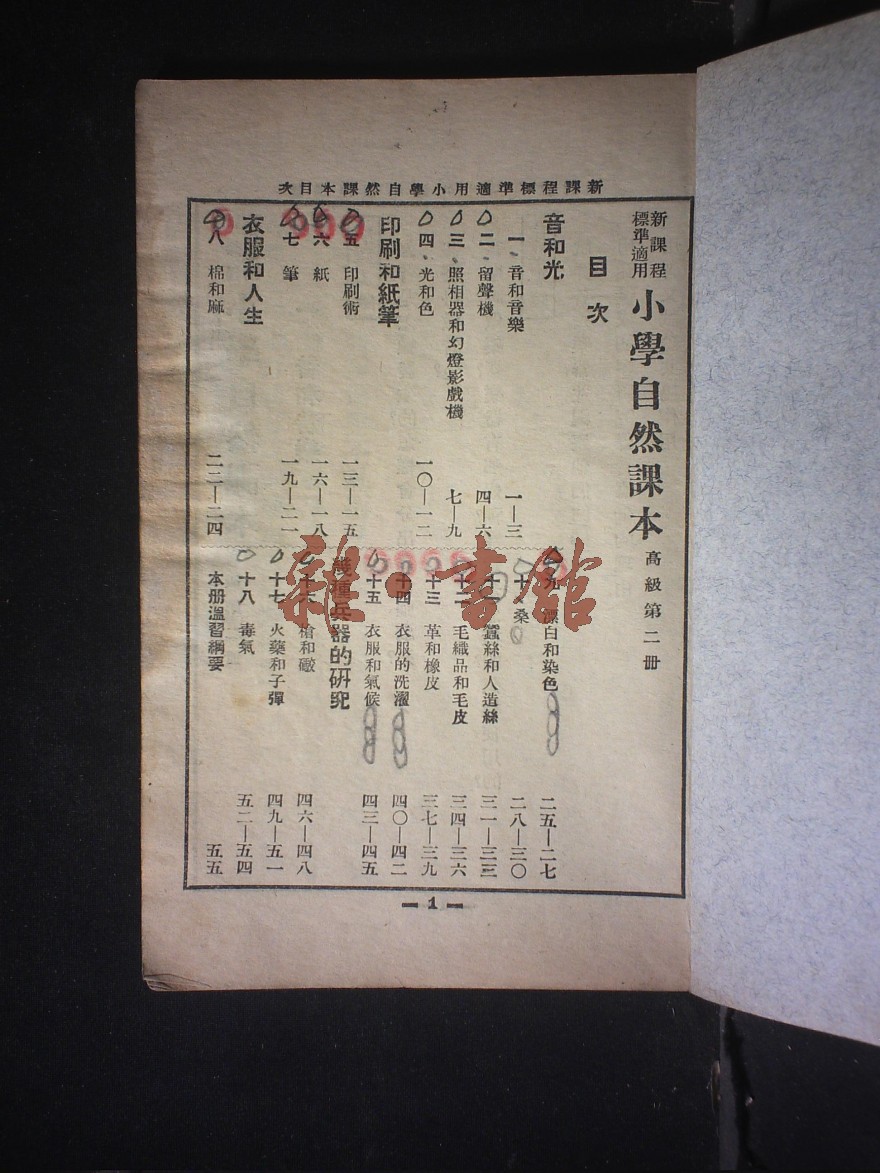 新課程標準適用小學自然課本目次
新課程標準適用 小學自然課本 高級第二冊
目次
音和光
一、音和音樂 一—三
二、留聲機 四—六
三、照相器和幻燈影戲機 七—九
四、光和色 一〇—一二
印刷和紙筆
五 印刷術 一三—一五
六 紙 一六—一八
七 筆 一九—二一
衣服和人生
八 棉和麻 二二—二四
九 漂白和染色 二五—二七
十、桑 二八—三〇
十一 蠶絲和人造絲 三一—三三
十二 毛織品和毛皮 三四—三六
十三 革和橡皮 三七—三九
十四 衣服的洗濯 四〇—四二
十五 衣服和氣候 四三—四五
種兵器的研究
十六 槍和礮 四六—四八
十七 火藥和子彈 四九—五一
十八 毒氣 五二—五四
本册溫習綱要 五五
1
雜·書館